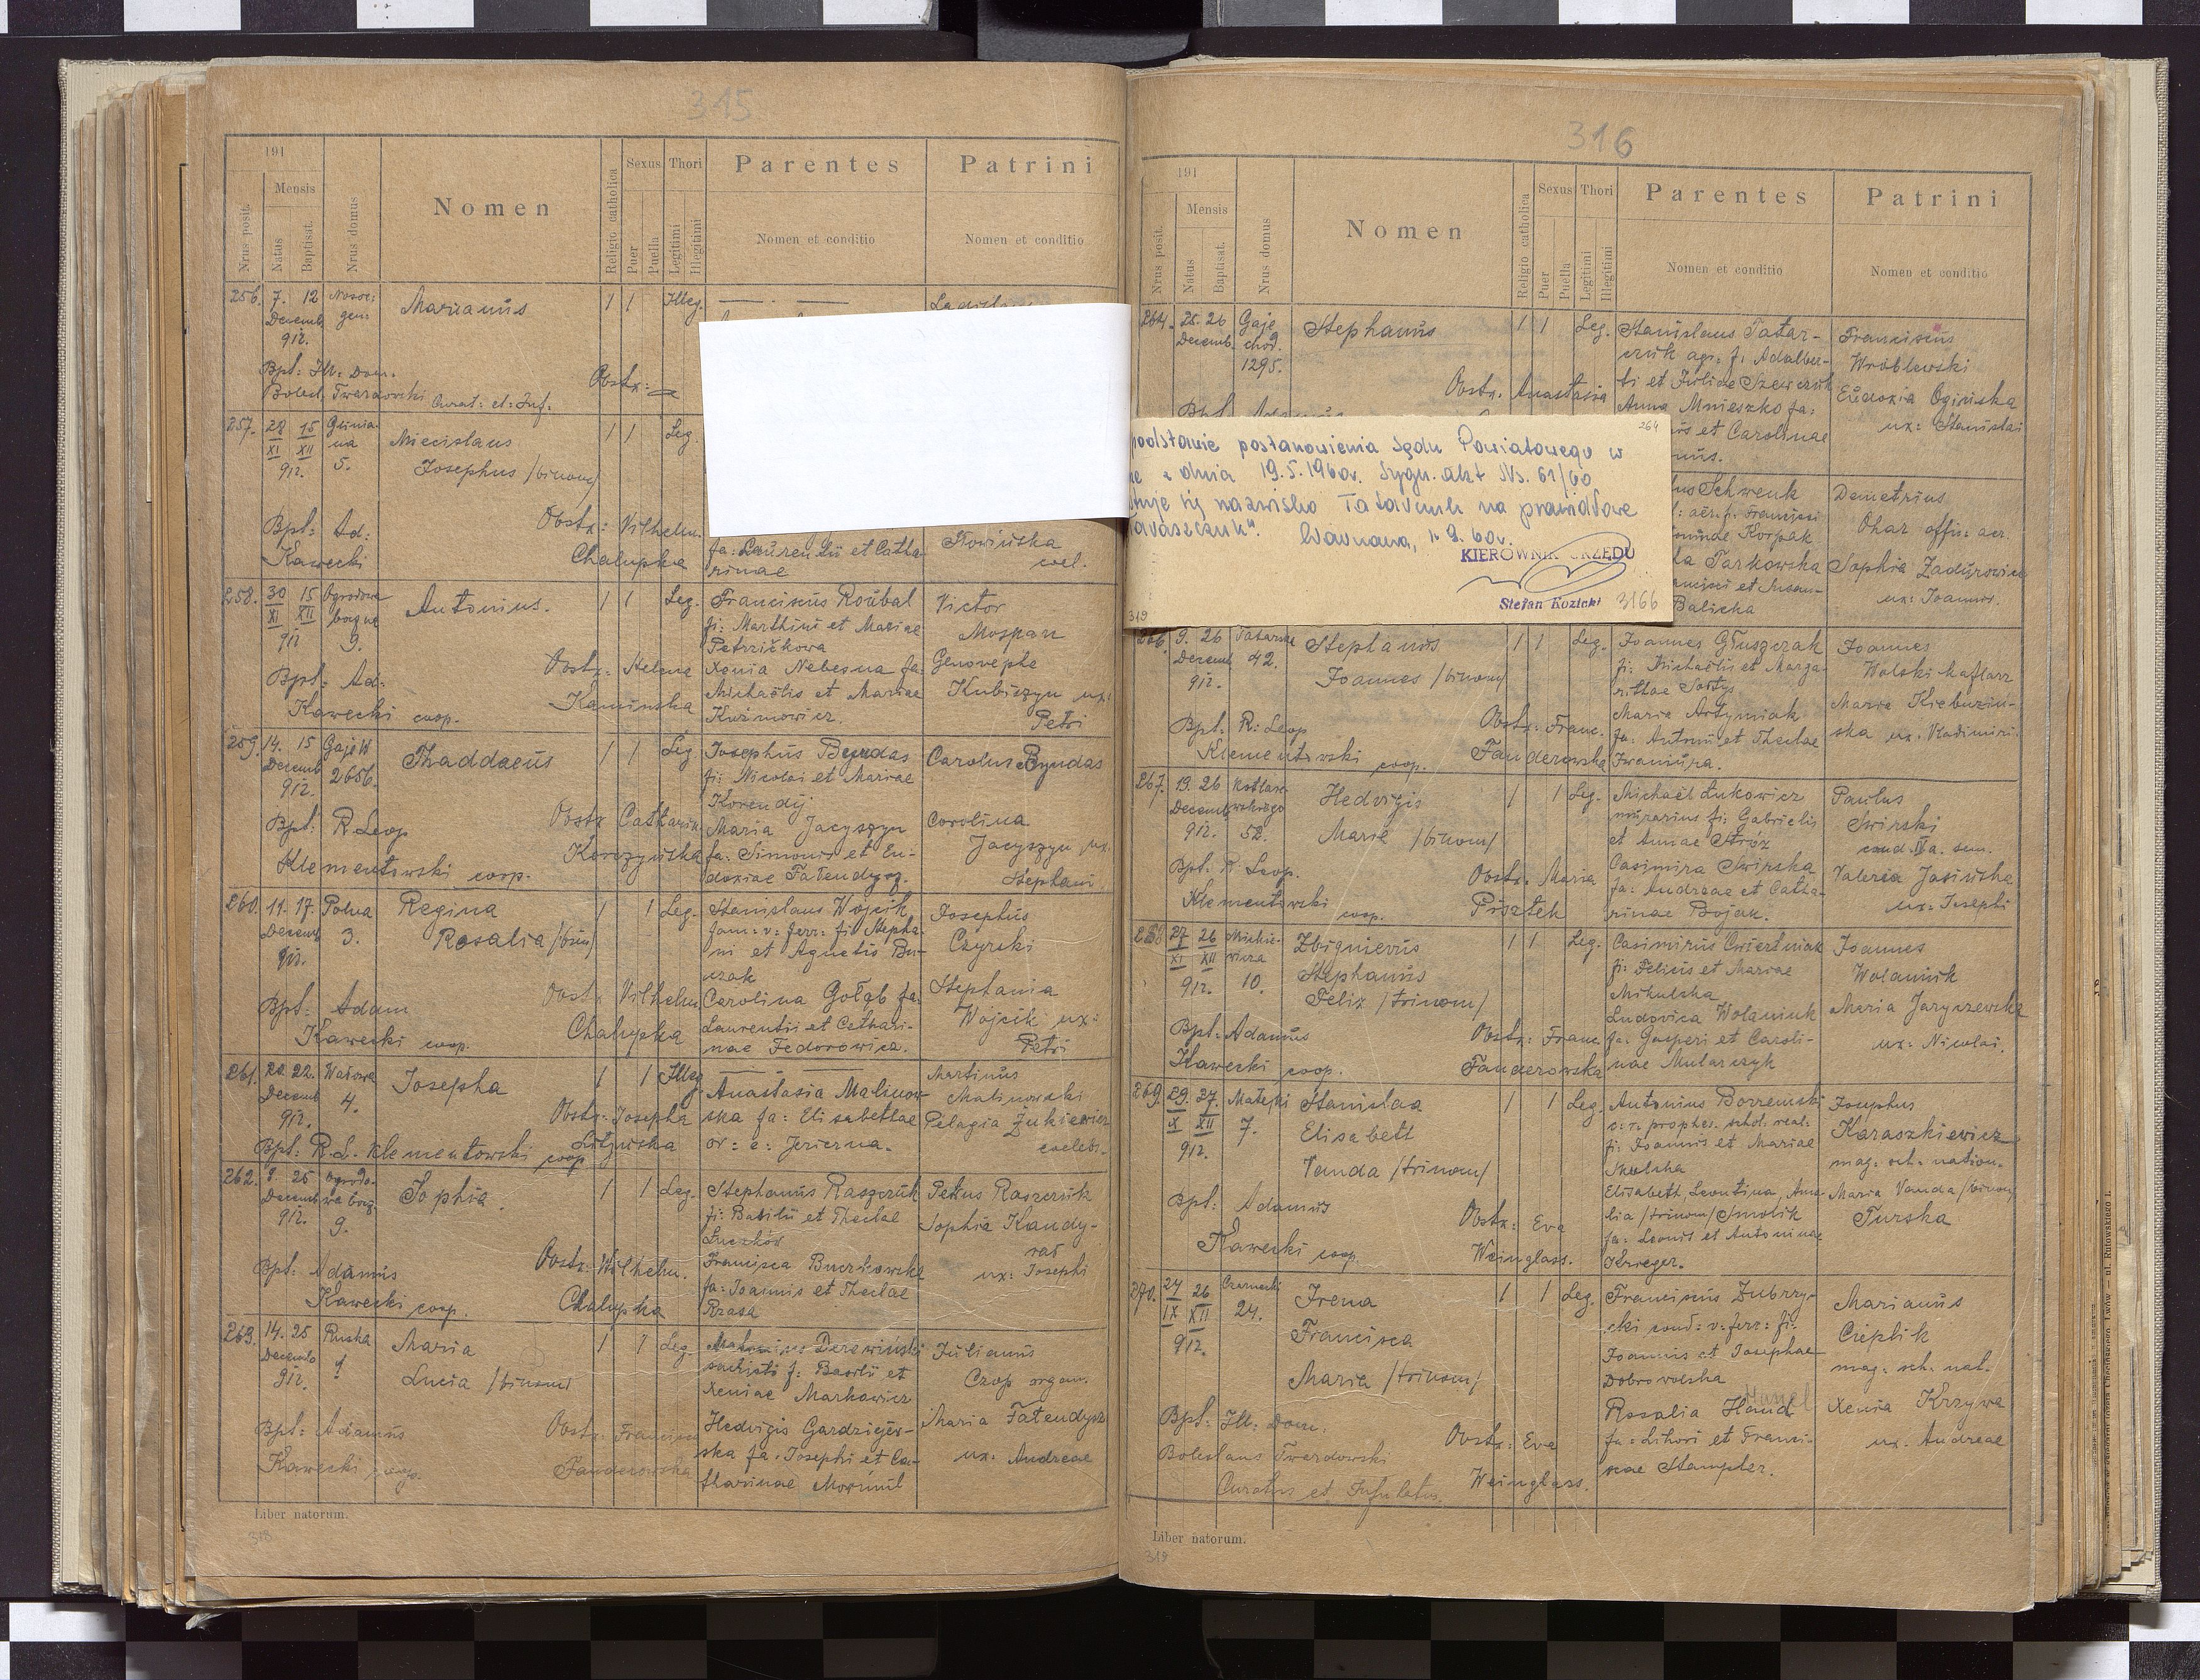 315
191
Mensis
Nrus posit.
Natus
Baptisat.
Nrus domus
Nomen
Religio catholica
Sexus
Puer
Puella
Thori
Legitimi
Illegitimi
Parentes
Nomen et conditio
Patrini
Nomen et conditio
256. 7. 12
Decemb.
912.
Marianus
1 1 Illeg.
Bpt: Ill: Dom.
Bolesl. Twardowski Curat: et: Inf.
Obstx:
257. 28 15
XI XII
912.
5.
Miecislaus
Josephus /binom/
1 1 Leg.
Bpt: Ad:
Kawecki
Obstx: Vilhelm.
Chalupka
fa: Laurentii et Catha-
rinae
Słowińska
cael.
258. 30 15
XI XII
912
Ogrodowa
boczna
9.
Antonius.
1 1 Leg.
Bpt: Ad:
Kawecki coop.
Obstx: Helena
Kamińska
Franciscus Roubal
fi: Marthini et Mariae
Petrzičkowa
Xenia Nebesna fa:
Michaëlis et Mariae
Kuźmowicz.
Victor
Mospan
Genovepha
Kubiszyn ux:
Petri
259. 14. 15
Decemb
912.
Gaje W
2656.
Thaddaeus
1 1 Leg
Bpt: R. Leop
Klementowski coop.
Obstx Catharin.
Korczyńska
Josephus Byndas
fi: Nicolai et Mariae
Korendij
Maria Jacyszyn
fa: Simonis et Eu-
doxiae Fatendysz.
Carolus Byndas
Carolina
Jacyszyn ux.
Stephani
260. 11. 17.
Decemb
912.
Polna
3.
Regina
Rosalia /bin/
1 1 Leg.
Bpt: Adam
Kawecki coop.
Obstx Vilhelm
Chalupka
Stanislaus Wojcik
fam: v: ferr: fi: Stepha-
ni et Agnetis Bu-
czak
Carolina Gołąb fa:
Laurentii et Cathari-
nae Fedorowicz.
Josephus
Czyrski
Stephania
Wojcik ux:
Petri
261. 20. 22.
Decemb
912.
Wałowa
4.
Josepha
1 1 Illeg
Obstx: Josepha
Lityńska
Bpt: R. L. Klementowski coop
Anastasia Malinow-
ska fa: Elisabethae
or: e: Jezierna.
Martinus
Malinowski
Pelagia Żukiewicz
caelebs.
262. 8. 25
Decemb
912.
Ogrodo-
wa bocz.
9.
Sophia.
1 1 Leg.
Bpt: Adamus
Kawecki coop.
Obstx: Wilhelm.
Chalupka
Stephanus Raszczuk
fi: Basilii et Theclae
Łuczków
Francisca Buczkowska
fa: Joannis et Theclae
Rzasa
Petrus Raszczuk
Sophia Kandy-
ux: Josephi
263. 14. 25
Decemb
912.
Ruska
Maria
Lucia /binom/
1 1 Leg.
Bpt: Adamus
Kawecki coop.
Obstx: Francisca
Fanderowska
Derewiński
fi: Basilii et
Xeniae Markowicz
Hedvigis Gardziejew-
ska fa: Josephi et Ca-
tharinae Mormul
Julianus
Czop organ.
Maria Fatendysz
ux: Andreae
Liber natorum.
318
316
191
Mensis
Nrus posit.
Natus
Baptisat.
Nrus domus
Nomen
Religio catholica
Sexus
Puer
Puella
Thori
Legitimi
Illegitimi
Parentes
Nomen et conditio
Patrini
Nomen et conditio
264. 25. 26
Decemb.
Gaje
chod.
1295.
Stephanus
1 1 Leg.
Obstx. Anastasia
Stanislaus Tatar-
czuk agr: f: Adalber-
ti et Juliae Szewczuk
Anna Mnieszko fa:
et Carolinae
Franciscus
Wróblewski
Eudoxia Ogińska
ux: Stanislai
264
podstawie postanowienia Sądu Powiatowego w
z dnia 19.5.1960r. Sygn. akt Ns. 61/60
się nazwisko Tatarczuk na prawidłowe
Taraszczuk". Warszawa, 1.9.60r.
KIEROWNIK URZĘDU
Stefan Kozicki 3166
319
Schwenk
Korpak
Tarkowska
Balicka
Demetrius
Ohar offic. aer.
Sophia Zadurowicz
ux: Joannis.
266. 9. 26
Decemb
912.
Tatarska
42.
Stephanus
Joannes /binom/
1 1 Leg.
Bpt: R: Leop
Klementowski coop.
Obstx: Franc.
Fanderowska
Joannes Głuszczak
fi: Michaëlis et Marga-
rithae Sołtys
Maria Artymiak
fa: Antonii et Theclae
Iwaniura.
Joannes
Wolski kaflarz
Maria Kiebuziń-
ska ux. Vladimiri.
267. 19. 26
Decemb
912.
Kotlare-
wskiego
52.
Hedvigis
Maria /binom/
1 1 Leg.
Bpt. R Leop.
Klementowski coop.
Obstx. Maria
Pisztek
Michaël Łukowicz
murarius fi: Gabrielis
et Annae Stróż
Casimira Swirska
fa: Andreae et Catha-
rinae Bojak.
Paulus
Swirski
cand. IVa. sem.
Valeria Jasińska
ux: Josephi
268 27 26
XI XII
912.
Mickie-
wicza
10.
Zbignievus
Stephanus
Felix /trinom/
1 1 Leg.
Bpt: Adamus
Kawecki coop.
Obstx: Franc
Fanderowska
Casimirus Ćwiertniak
fi: Felicis et Mariae
Mikulska
Ludovica Wolaniuk
fa: Gasperi et Caroli-
nae Mularczyk
Joannes
Wolaniuk
Maria Jaryczewska
ux: Nicolai.
269. 29. 27.
X XII
912.
Matejki
7.
Stanislaa
Elisabeth
Vanda /trinom/
1 1 Leg.
Bpt: Adamus
Kawecki coop.
Obstx: Eva
Weinglass.
Antonius Borzemski
v: r: prophes. schol. real:
fi: Joannis et Mariae
Skulska
Elisabeth, Leontina, Ama-
lia /trinom/ Smolik
fa: Leonis et Antoninae
Krieger.
Josephus
Karaszkiewicz
mag: sch: nation.
Maria Vanda /binom/
Turska
270. 24 26
IX XII
912.
Czarnecki
24.
Irena
Francisca
Maria /trinom/
1 1 Leg.
Bpt: Ill: Dom.
Boleslaus Twardowski
Curatus et Infulatus.
Obstx: Eva
Weinglass.
Franciscus Zubrzy-
cki cond: v: ferr: fi:
Joannis et Josephae
Dobrovolska
Rosalia Hand
fa: Lihori et Franci-
scae Stampler.
Marianus
Cieplik
mag: sch: nat.
Xenia Krzywa
ux. Andreae
Liber natorum.
319